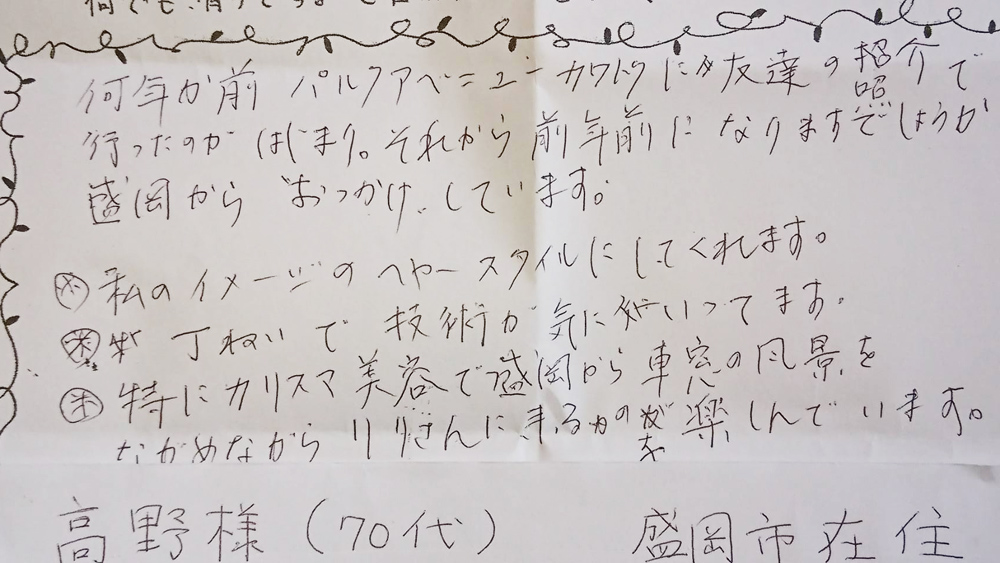 何年か前 パルクアベニューカワトクに友達の紹介で
行ったのがはじまり。それから前年前になりますでしょうか
盛岡から〝おっかけ〟しています。
私のイメージのヘヤースタイルにしてくれます。
丁ねいで技術が気にいってます。
特にカリスマ美容で盛岡から車窓の風景を
ながめながらリリさんにきるのを楽しんでいます。
高野様(70代) 盛岡市在住